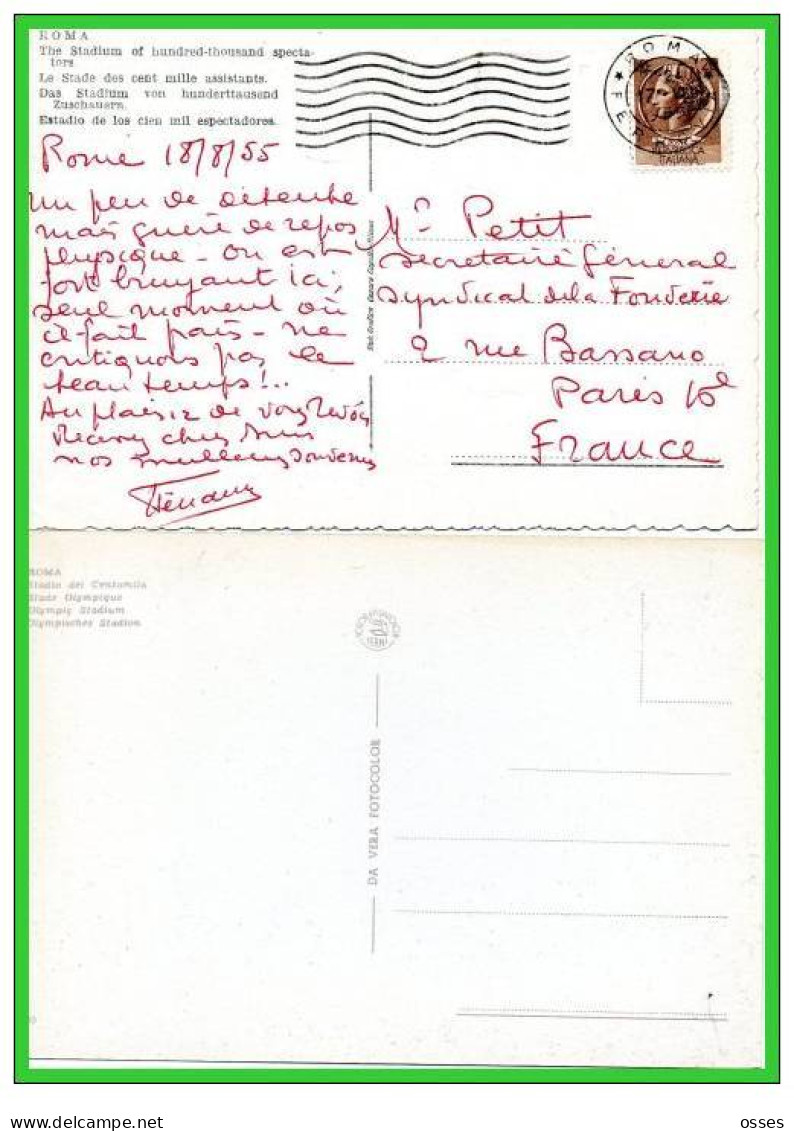 ROMA
The Stadium of hundred-thousand specta-
tors
Le Stade des cent mille assistants.
Das Stadium von hunderttausend
Zuschauern.
Estadio de los cien mil espectadores.
ROMA
FERR
POSTE
REPUBBLICA
ITALIANA
Rome 18/8/55
Un peu de détente
mais guère de repos
physique - on est
fort bruyant ici;
seul moment où
il fait frais - ne
critiquons pas le
beau temps!..
Au plaisir de vous revoir
Recevez chez
nos meilleurs souvenirs
Mr Petit
Secretaire Général
Syndical de la Fonderie
2 rue Bassano
Paris 16e
France
ROMA
Stadio dei Centomila
Stade Olympique
Olympic Stadium
Olympisches Stadion
DA VERA FOTOCOLOR
osses